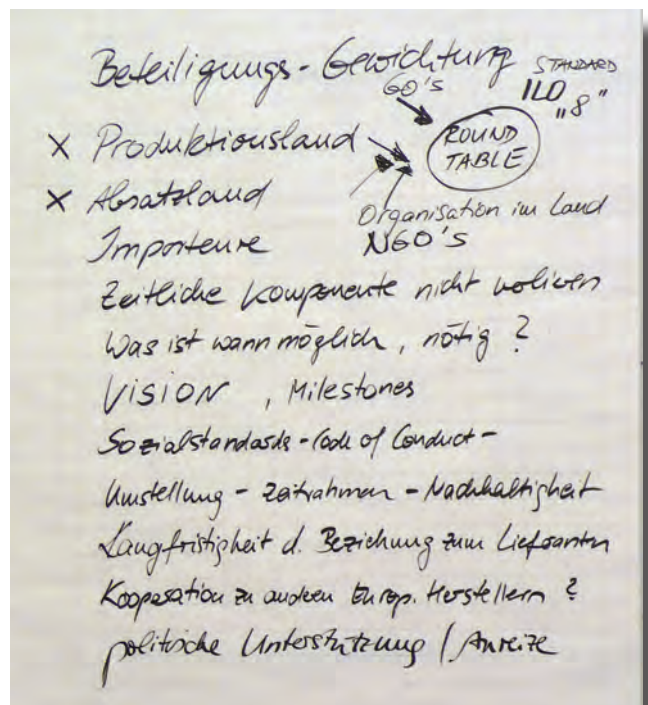 Beteiligungs-Gewichtung
GO's
STANDARD
ILO
"8"
x Produktionsland
ROUND
TABLE
x Absatzland
Organisation im Land
Importeure
NGO'S
Zeitliche Komponente nicht
Was ist wann möglich, nötig?
VISION, Milestones
Sozialstandards - Code of Conduct -
Umstellung - Zeitrahmen - Nachhaltigkeit
Langfristigkeit d. Beziehung zum Lieferanten
Kooperation zu anderen Europ. Herstellern?
politische Unterstützung / Anreize